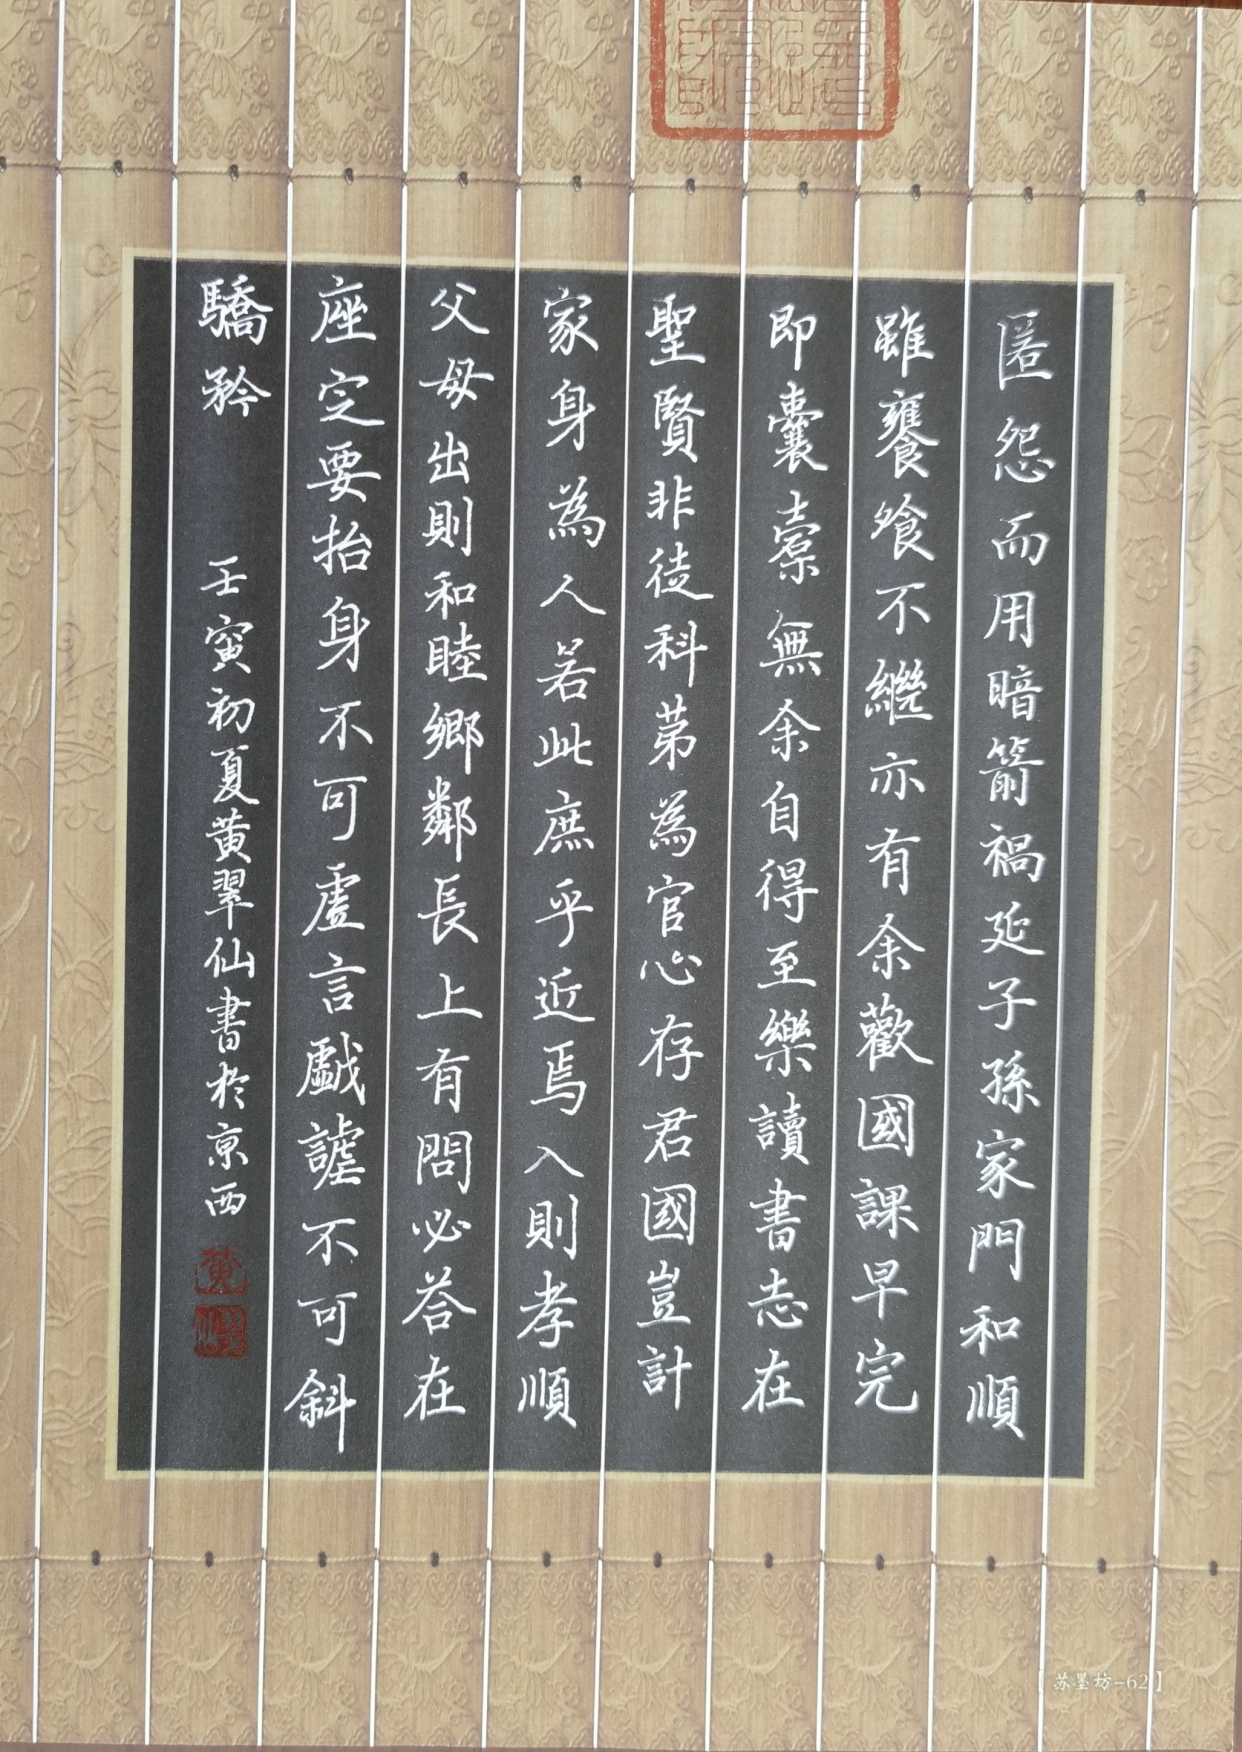 匿怨而用暗箭禍延子孫家門和順
雖饔飱不繼亦有余歡國課早完
即囊橐無余自得至樂讀書志在
聖賢非徒科第為官心存君國豈計
家身為人若此庶乎近焉入則孝順
父母出則和睦鄉鄰長上有問必答在
座定要抬身不可虛言戲謔不可斜
驕矜
壬寅初夏黄翠仙書於京西
【苏墨坊-62】